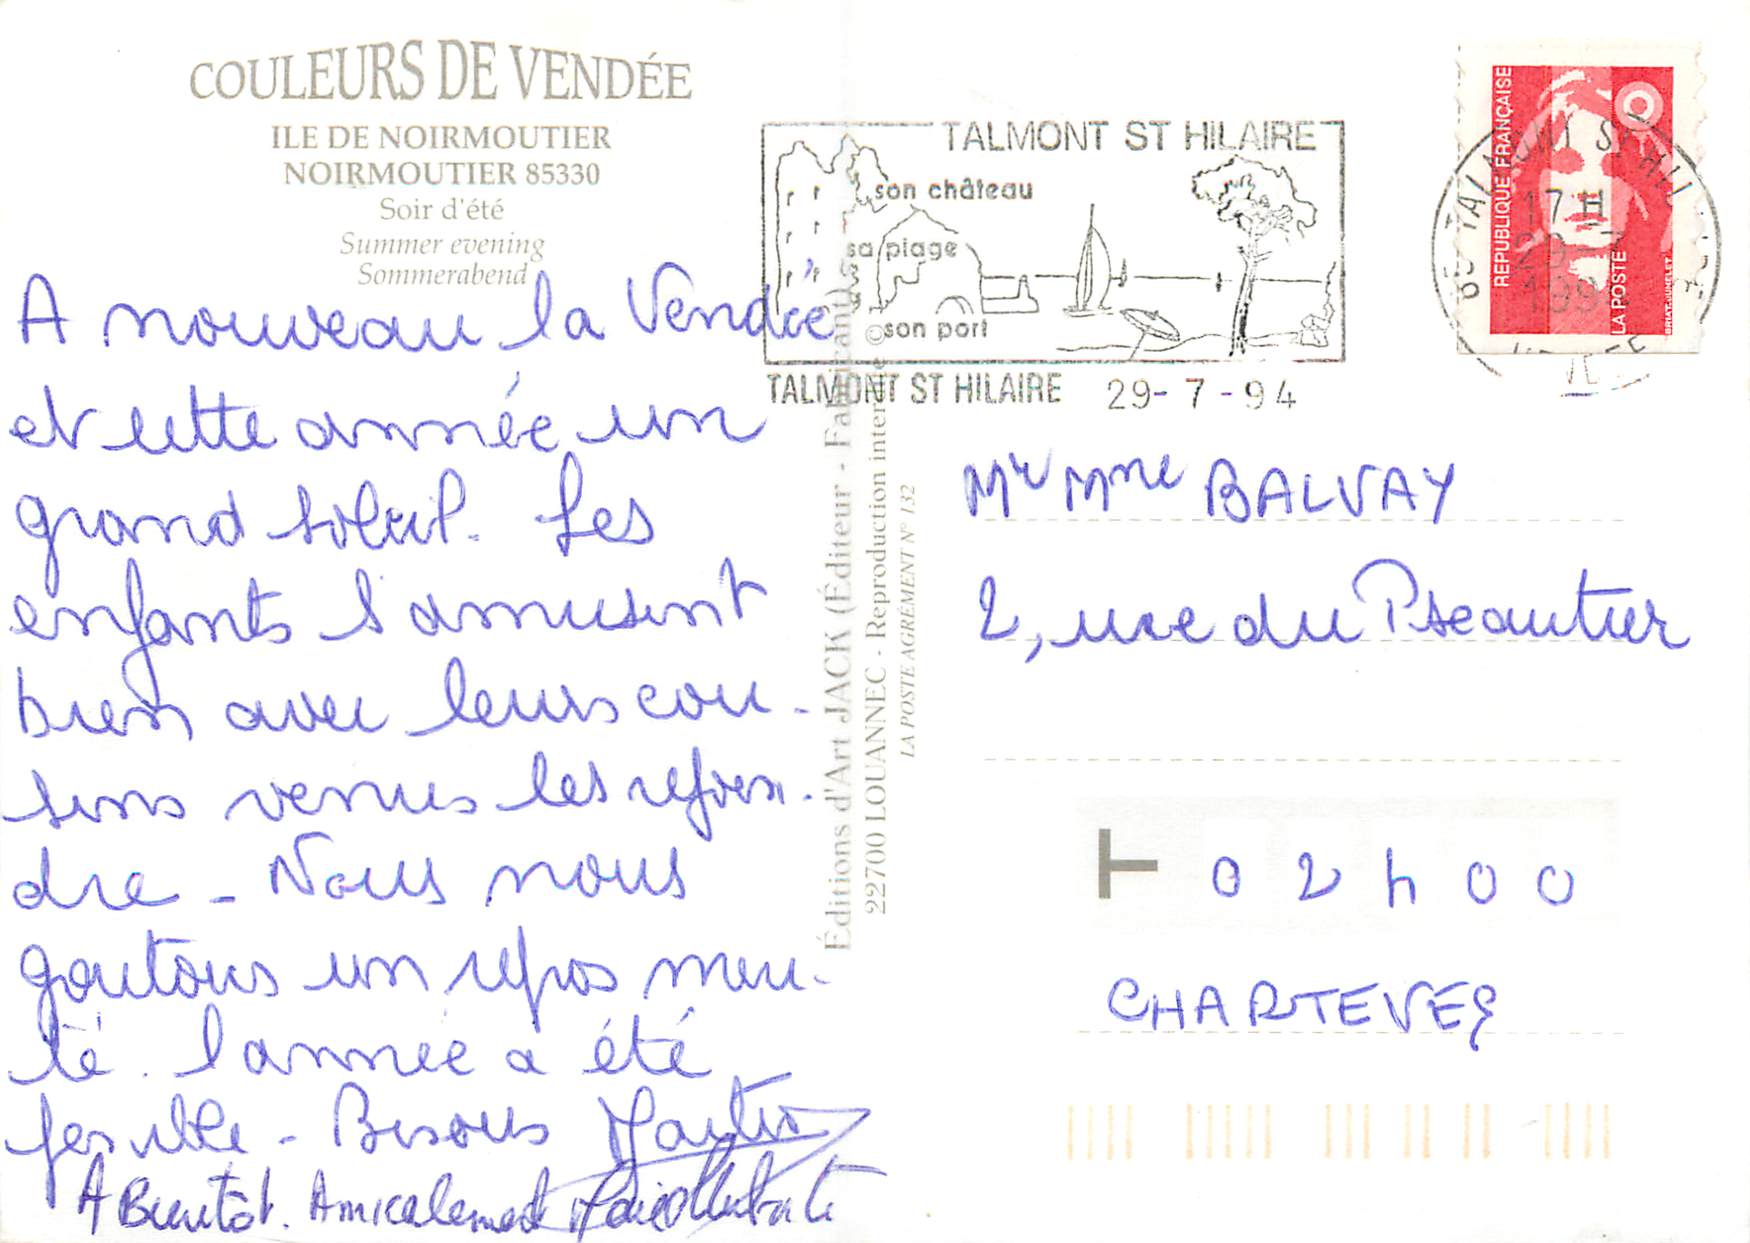 COULEURS DE VENDÉE
ILE DE NOIRMOUTIER
NOIRMOUTIER 85330
Soir d'été
Summer evening
Sommerabend
A nouveau la Vendée
et cette année un
grand soleil. Les
enfants s'amusent
bien avec leurs cou-
sins venus les rejoin-
dre - Nous nous
goutons un repos méri-
té. l'année a été
pénible - Bisous
A Bientôt. Amicalement
Éditions d'Art JACK (Éditeur - Fabricant)
22700 LOUANNEC - Reproduction interdite ©
LA POSTE AGRÉMENT N° 132
TALMONT ST HILAIRE
son château
sa plage
son port
TALMONT ST HILAIRE 29-7-94
REPUBLIQUE FRANÇAISE
LA POSTE
BRIAT-JUMELET
85 TALMONT ST HIL
17 H
29-7
1994
VENDEE
Mr Mme BALVAY
2, rue du Pseautier
T 02400
CHARTEVES